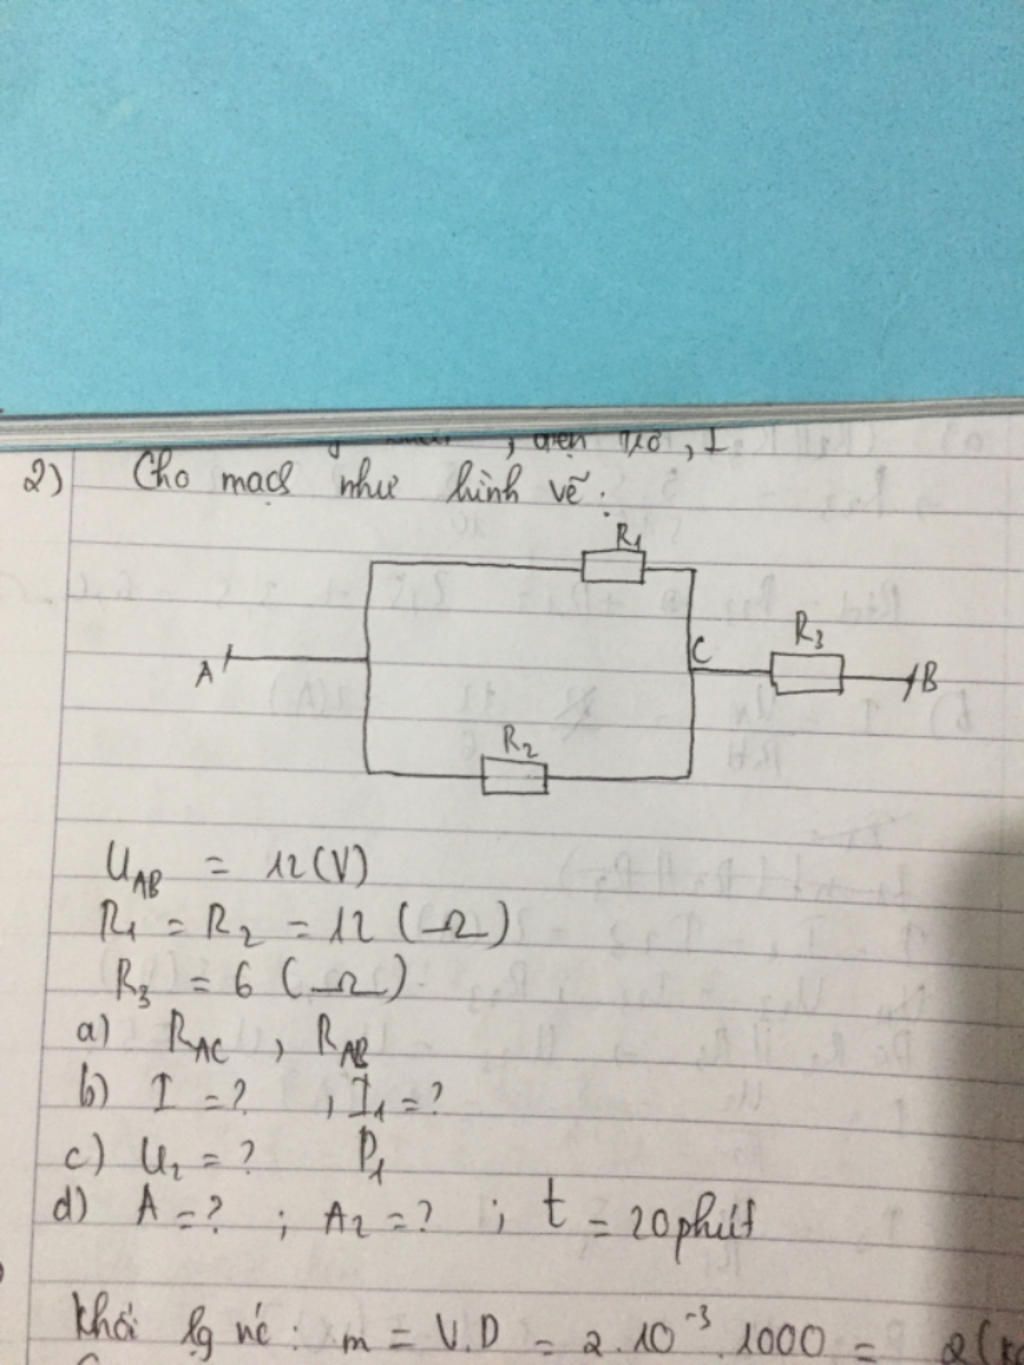 , điện trở, I
2) Cho mạch như hình vẽ:
R₁
C R₃
A B
R₂
U_AB = 12 (V)
R₁ = R₂ = 12 (Ω)
R₃ = 6 (Ω)
a) R_AC, R_AB
b) I = ?, I₁ = ?
c) U₂ = ? P₁
d) A = ? ; A₂ = ? ; t = 20 phút
Khối lg nc: m = V.D = 2.10⁻³.1000 = 2 (k